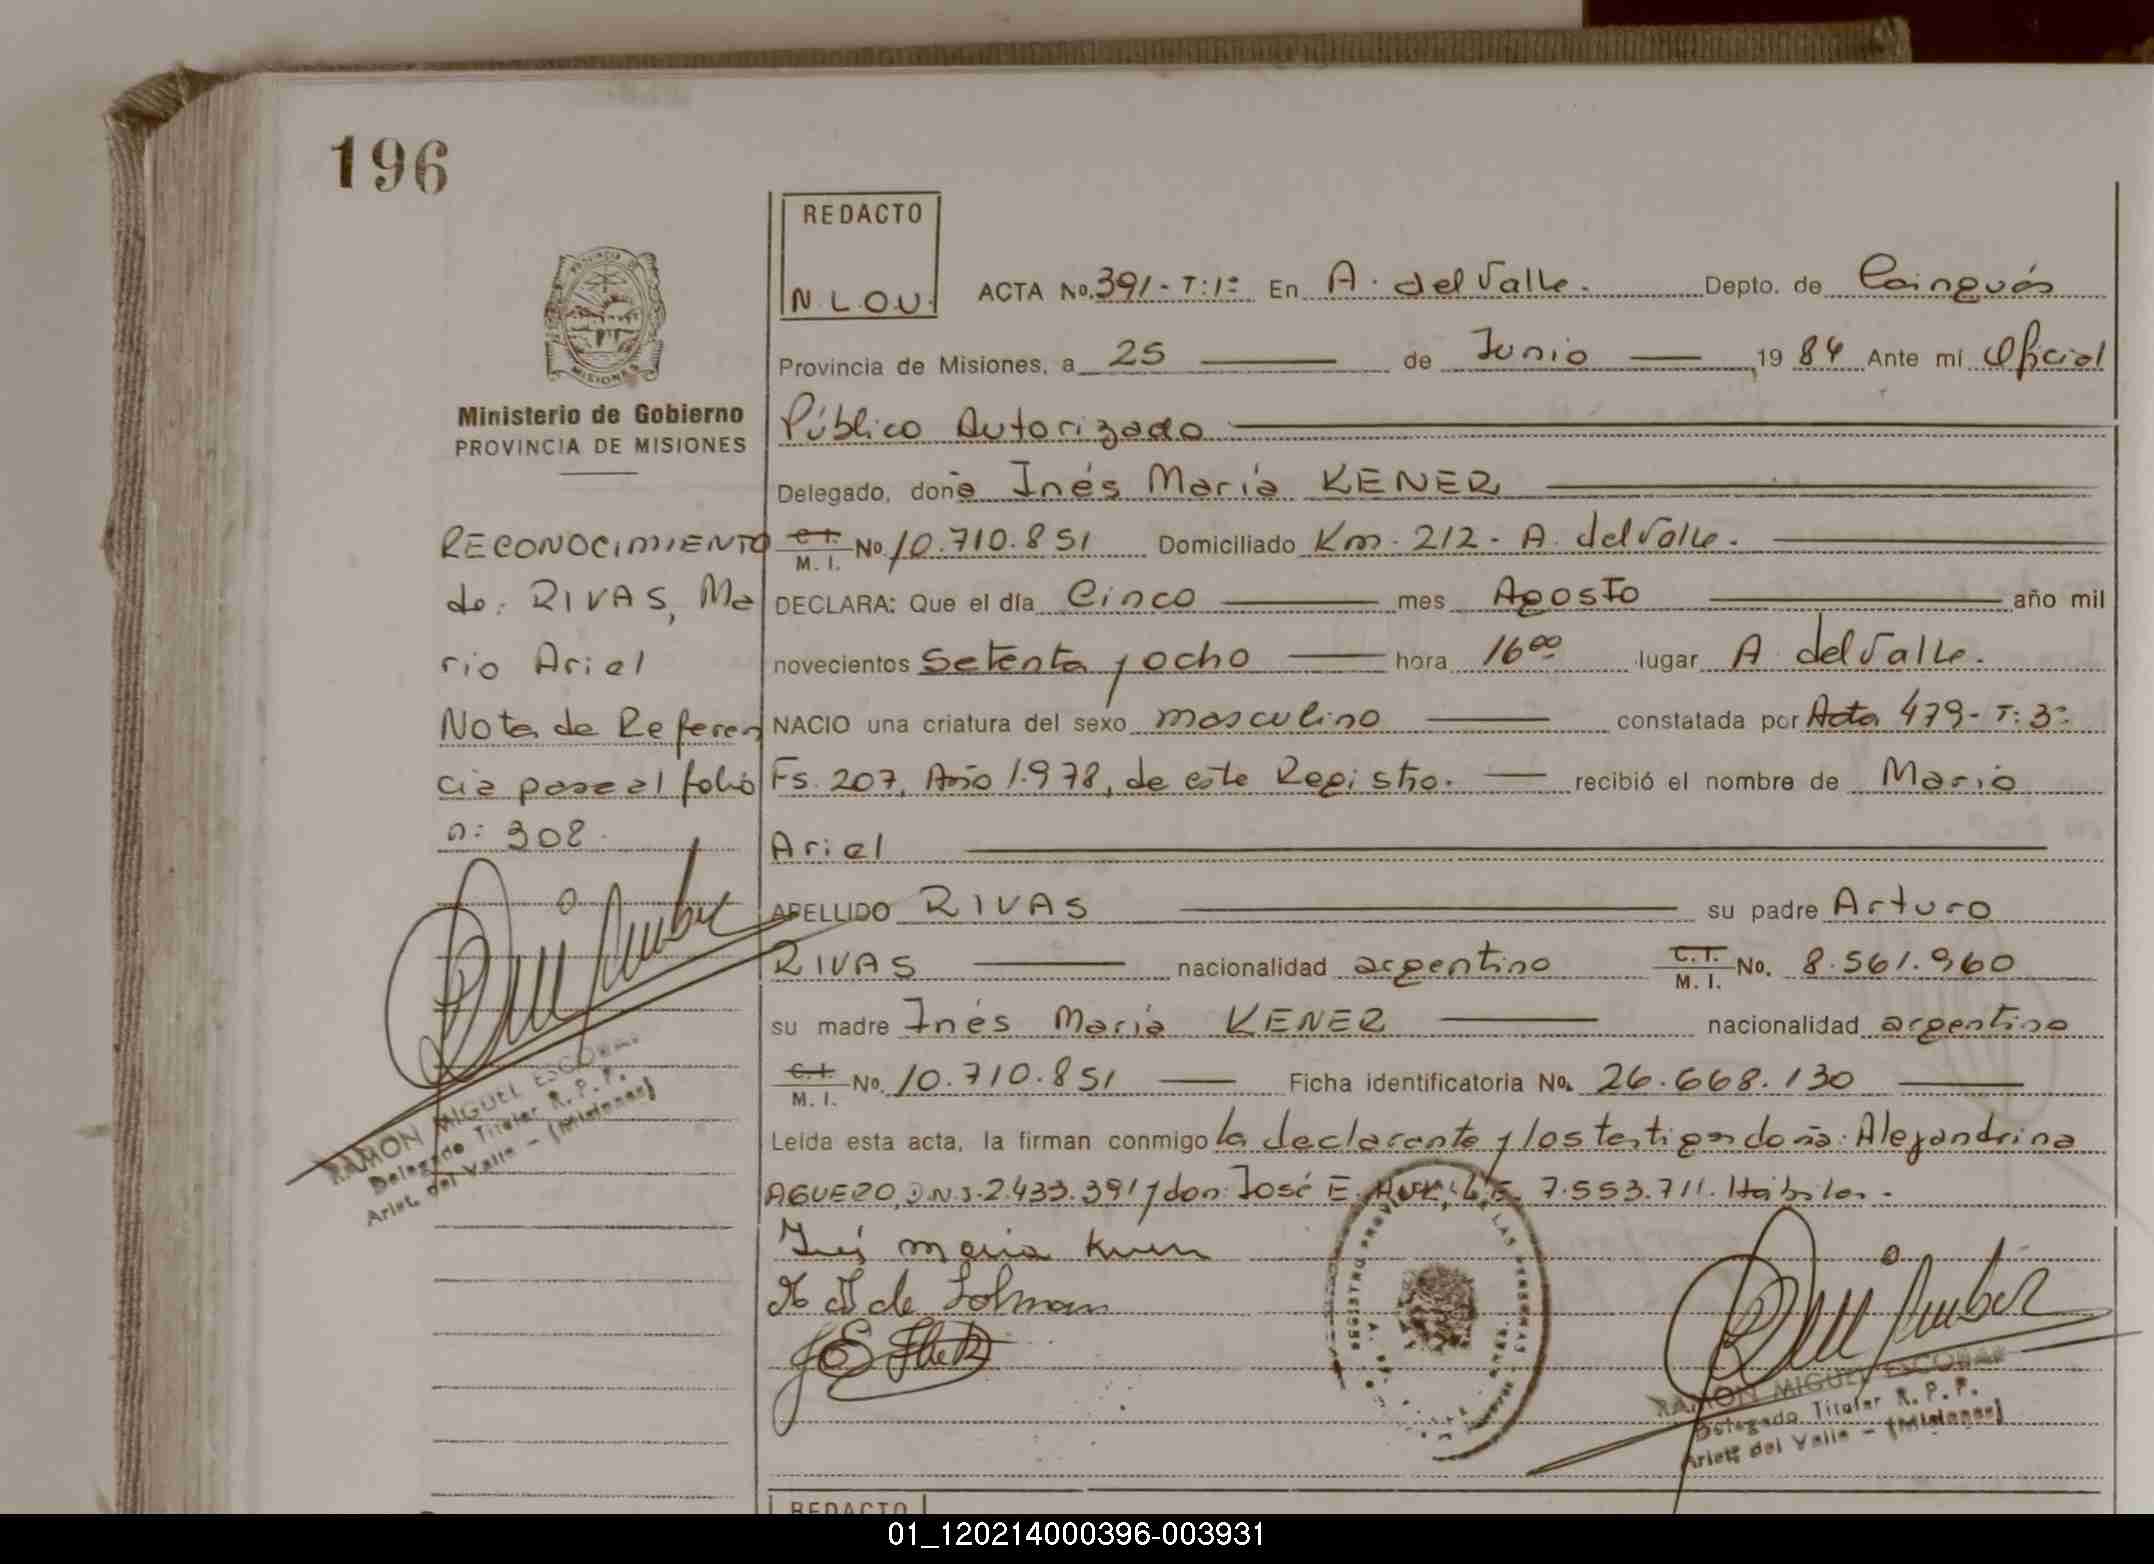 196
REDACTO
N.L.O.U.
PROVINCIA DE
MISIONES
Ministerio de Gobierno
PROVINCIA DE MISIONES
RECONOCIMIENTO
de: RIVAS, Ma
rio Ariel
Nota de Referen
cia pase al folio
n: 308.
RAMON MIGUEL ESCOBAR
Delegado Titular R.P.P.
Arist. del Valle - (Misiones)
ACTA No. 391 - T: 1º En A. del Valle. Depto. de Cainguás
Provincia de Misiones, a 25 de Junio 19 84 Ante mi Oficial
Público Autorizado
Delegado, doña Inés María KENER
C.I. M. I. No. 10.710.851 Domiciliado Km. 212 - A. del Valle.
DECLARA: Que el día Cinco mes Agosto año mil
novecientos Setenta y ocho hora 16 00 lugar A. del Valle.
NACIO una criatura del sexo masculino constatada por Acta 479 - T: 3º
Fs. 207, Año 1.978, de este Registro. recibió el nombre de Mario
Ariel
APELLIDO RIVAS su padre Arturo
RIVAS nacionalidad argentino C.I. M. I. No. 8.561.960
su madre Inés María KENER nacionalidad argentina
C.I. M. I. No. 10.710.851 Ficha identificatoria No. 26.668.130
Leída esta acta, la firman conmigo la declarante y los testigos doña: Alejandrina
AGUERO, D.N.I. 2.433.391 y don: José E. L.E. 7.553.711. Hábiles.
Inés maria
de Lohman
REGISTRO PROVINCIAL DE LAS PERSONAS
RAMON MIGUEL ESCOBAR
Delegado Titular R.P.P.
Arist. del Valle - (Misiones)
REDACTO
01_120214000396-003931